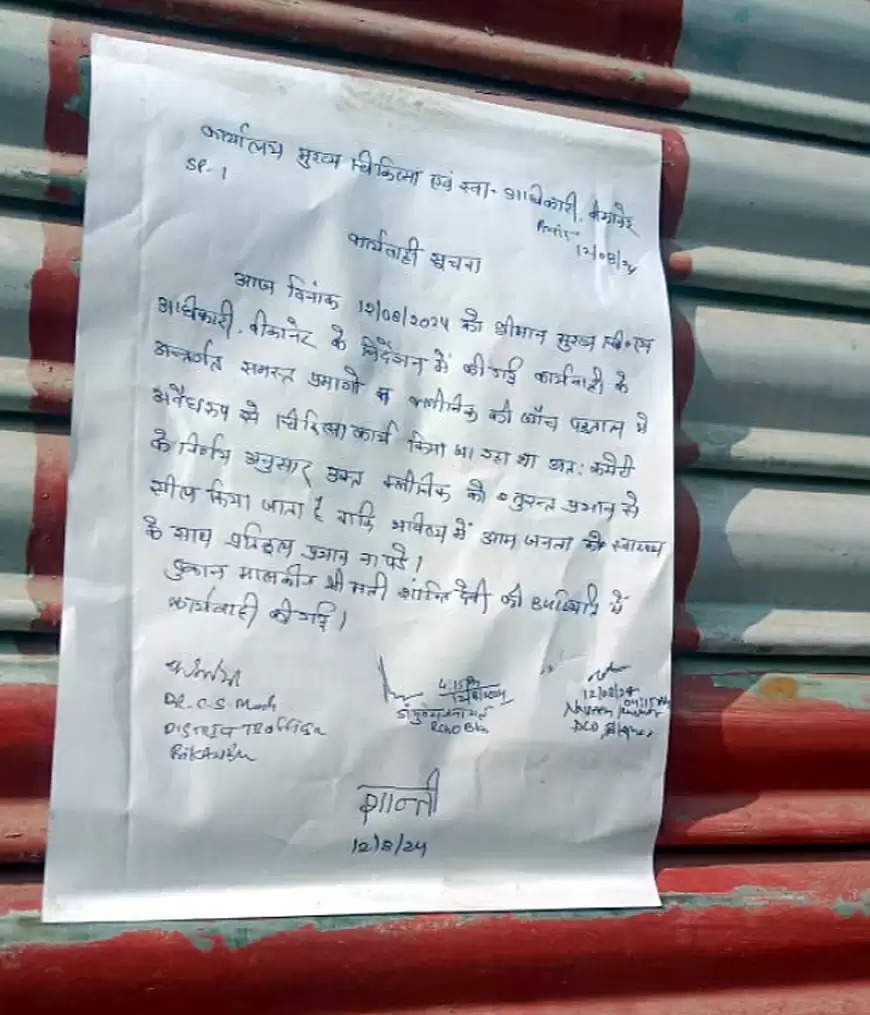 कार्यालय मुख्य चिकित्सा एवं स्वा- अधिकारी, बीकानेर
SP-1
12/08/24
कार्यवाही सूचना
आज दिनांक 12/08/2024 को श्रीमान मुख्य चि० एवं
अधिकारी, बीकानेर के निर्देशन में की गई कार्यवाही के
अन्तर्गत समस्त क्लीनिक की जाँच पड़ताल में
अवैधरुप से चिकित्सा कार्य किया जा रहा था अतः कमेटी
के निर्णय अनुसार उक्त क्लीनिक को तुरन्त प्रभाव से
सील किया जाता है ताकि भविष्य में आम जनता के स्वास्थ्य
के साथ प्रतिकूल प्रभाव ना पडे।
दुकान मालकीन श्रीमती शान्ति देवी की उपस्थिति में
कार्यवाही की गई।
DR. C.S. Modi
4:15 PM
12/8/2024
12/08/24
04:15 PM
DCO
शान्ती
12/8/24